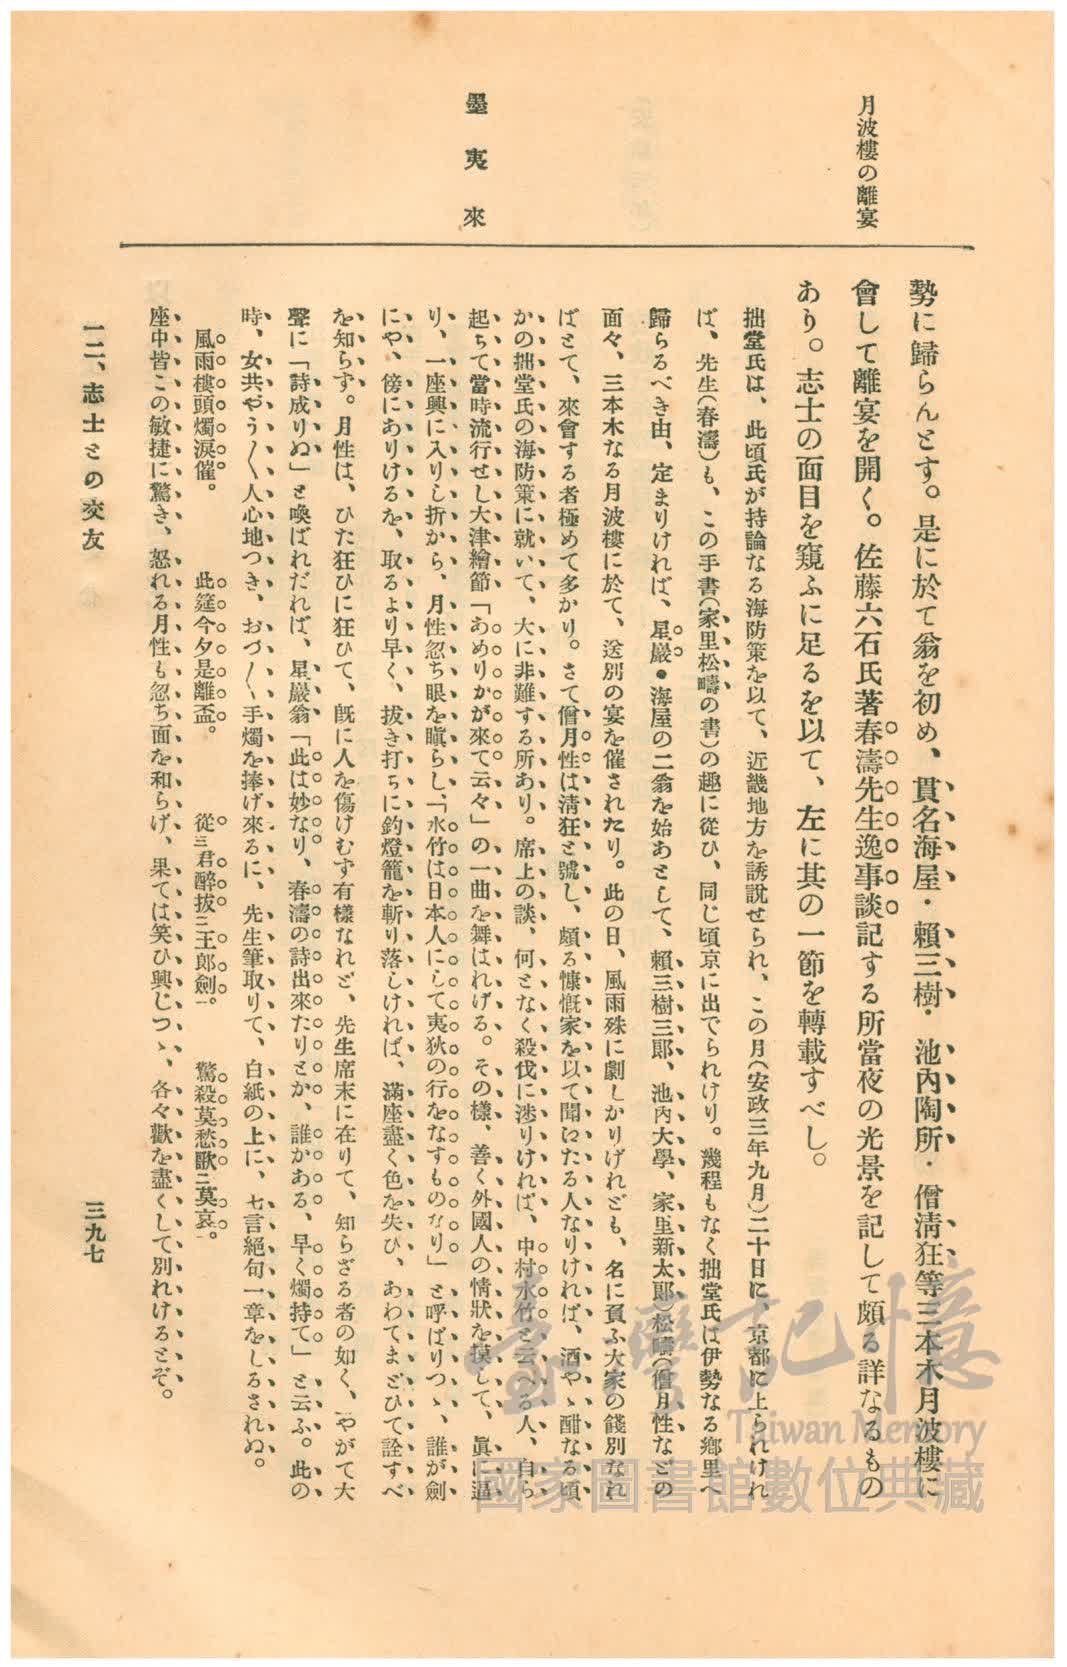 月波樓の離宴
墨夷來
勢に歸らんとす。是に於て翁を初め、貫名海屋・賴三樹・池內陶所・僧淸狂等三本木月波樓に
會して離宴を開く。佐藤六石氏著春濤先生逸事談記する所當夜の光景を記して頗る詳なるもの
あり。志士の面目を窺ふに足るを以て、左に其の一節を轉載すべし。
拙堂氏は、此頃氏が持論なる海防策を以て、近畿地方を誘說せられ、この月(安政三年九月)二十日に、京都に上られけれ
ば、先生(春濤)も、この手書(家里松疇の書)の趣に從ひ、同じ頃京に出でられけり。幾程もなく拙堂氏は伊勢なる鄕里へ
歸らるべき由、定まりければ、星巖・海屋の二翁を始めとして、賴三樹三郞、池內大學、家里新太郞)松疇(僧月性などの
面々、三本木なる月波樓に於て、送別の宴を催されたり。此の日、風雨殊に劇しかりけれども、名に負ふ大家の餞別なれ
ばとて、來會する者極めて多かり。さて僧月性は淸狂と號し、頗る慷慨家を以て聞えたる人なりければ、酒やゝ酣なる頃
かの拙堂氏の海防策に就いて、大に非難する所あり。席上の談、何となく殺伐に涉りければ、中村水竹と云へる人、自ら
起ちて當時流行せし大津繪節「あめりかが來て云々」の一曲を舞はれける。その樣、善く外國人の情狀を摸して、眞に逼
り、一座興に入りし折から、月性忽ち眼を瞋らし、「水竹は日本人にして夷狄の行をなすものなり」と呼ばりつゝ、誰が劍
にや、傍にありけるを、取るより早く、拔き打ちに釣燈籠を斬り落しければ、滿座盡く色を失ひ、あわてまどひて詮すべ
を知らず。月性は、ひた狂ひに狂ひて、旣に人を傷けむず有樣なれど、先生席末に在りて、知らざる者の如く、やがて大
聲に「詩成りぬ」と喚ばれだれば、星巖翁「此は妙なり、春濤の詩出來たりとか、誰かある、早く燭持て」と云ふ。此の
時、女共やう〱人心地つき、おづ〱手燭を捧げ來るに、先生筆取りて、白紙の上に、七言絕句一章をしるされぬ。
風雨樓頭燭淚催。　此筵今夕是離盃。　從三君醉拔二王郞劍一。　驚殺莫愁歌二莫哀一。
座中皆この敏捷に驚き、怒れる月性も忽ち面を和らげ、果ては笑ひ興じつゝ、各々歡を盡くして別れけるとぞ。
一二、志士との交友
三九七
臺灣記憶
Taiwan Memory
國家圖書館數位典藏